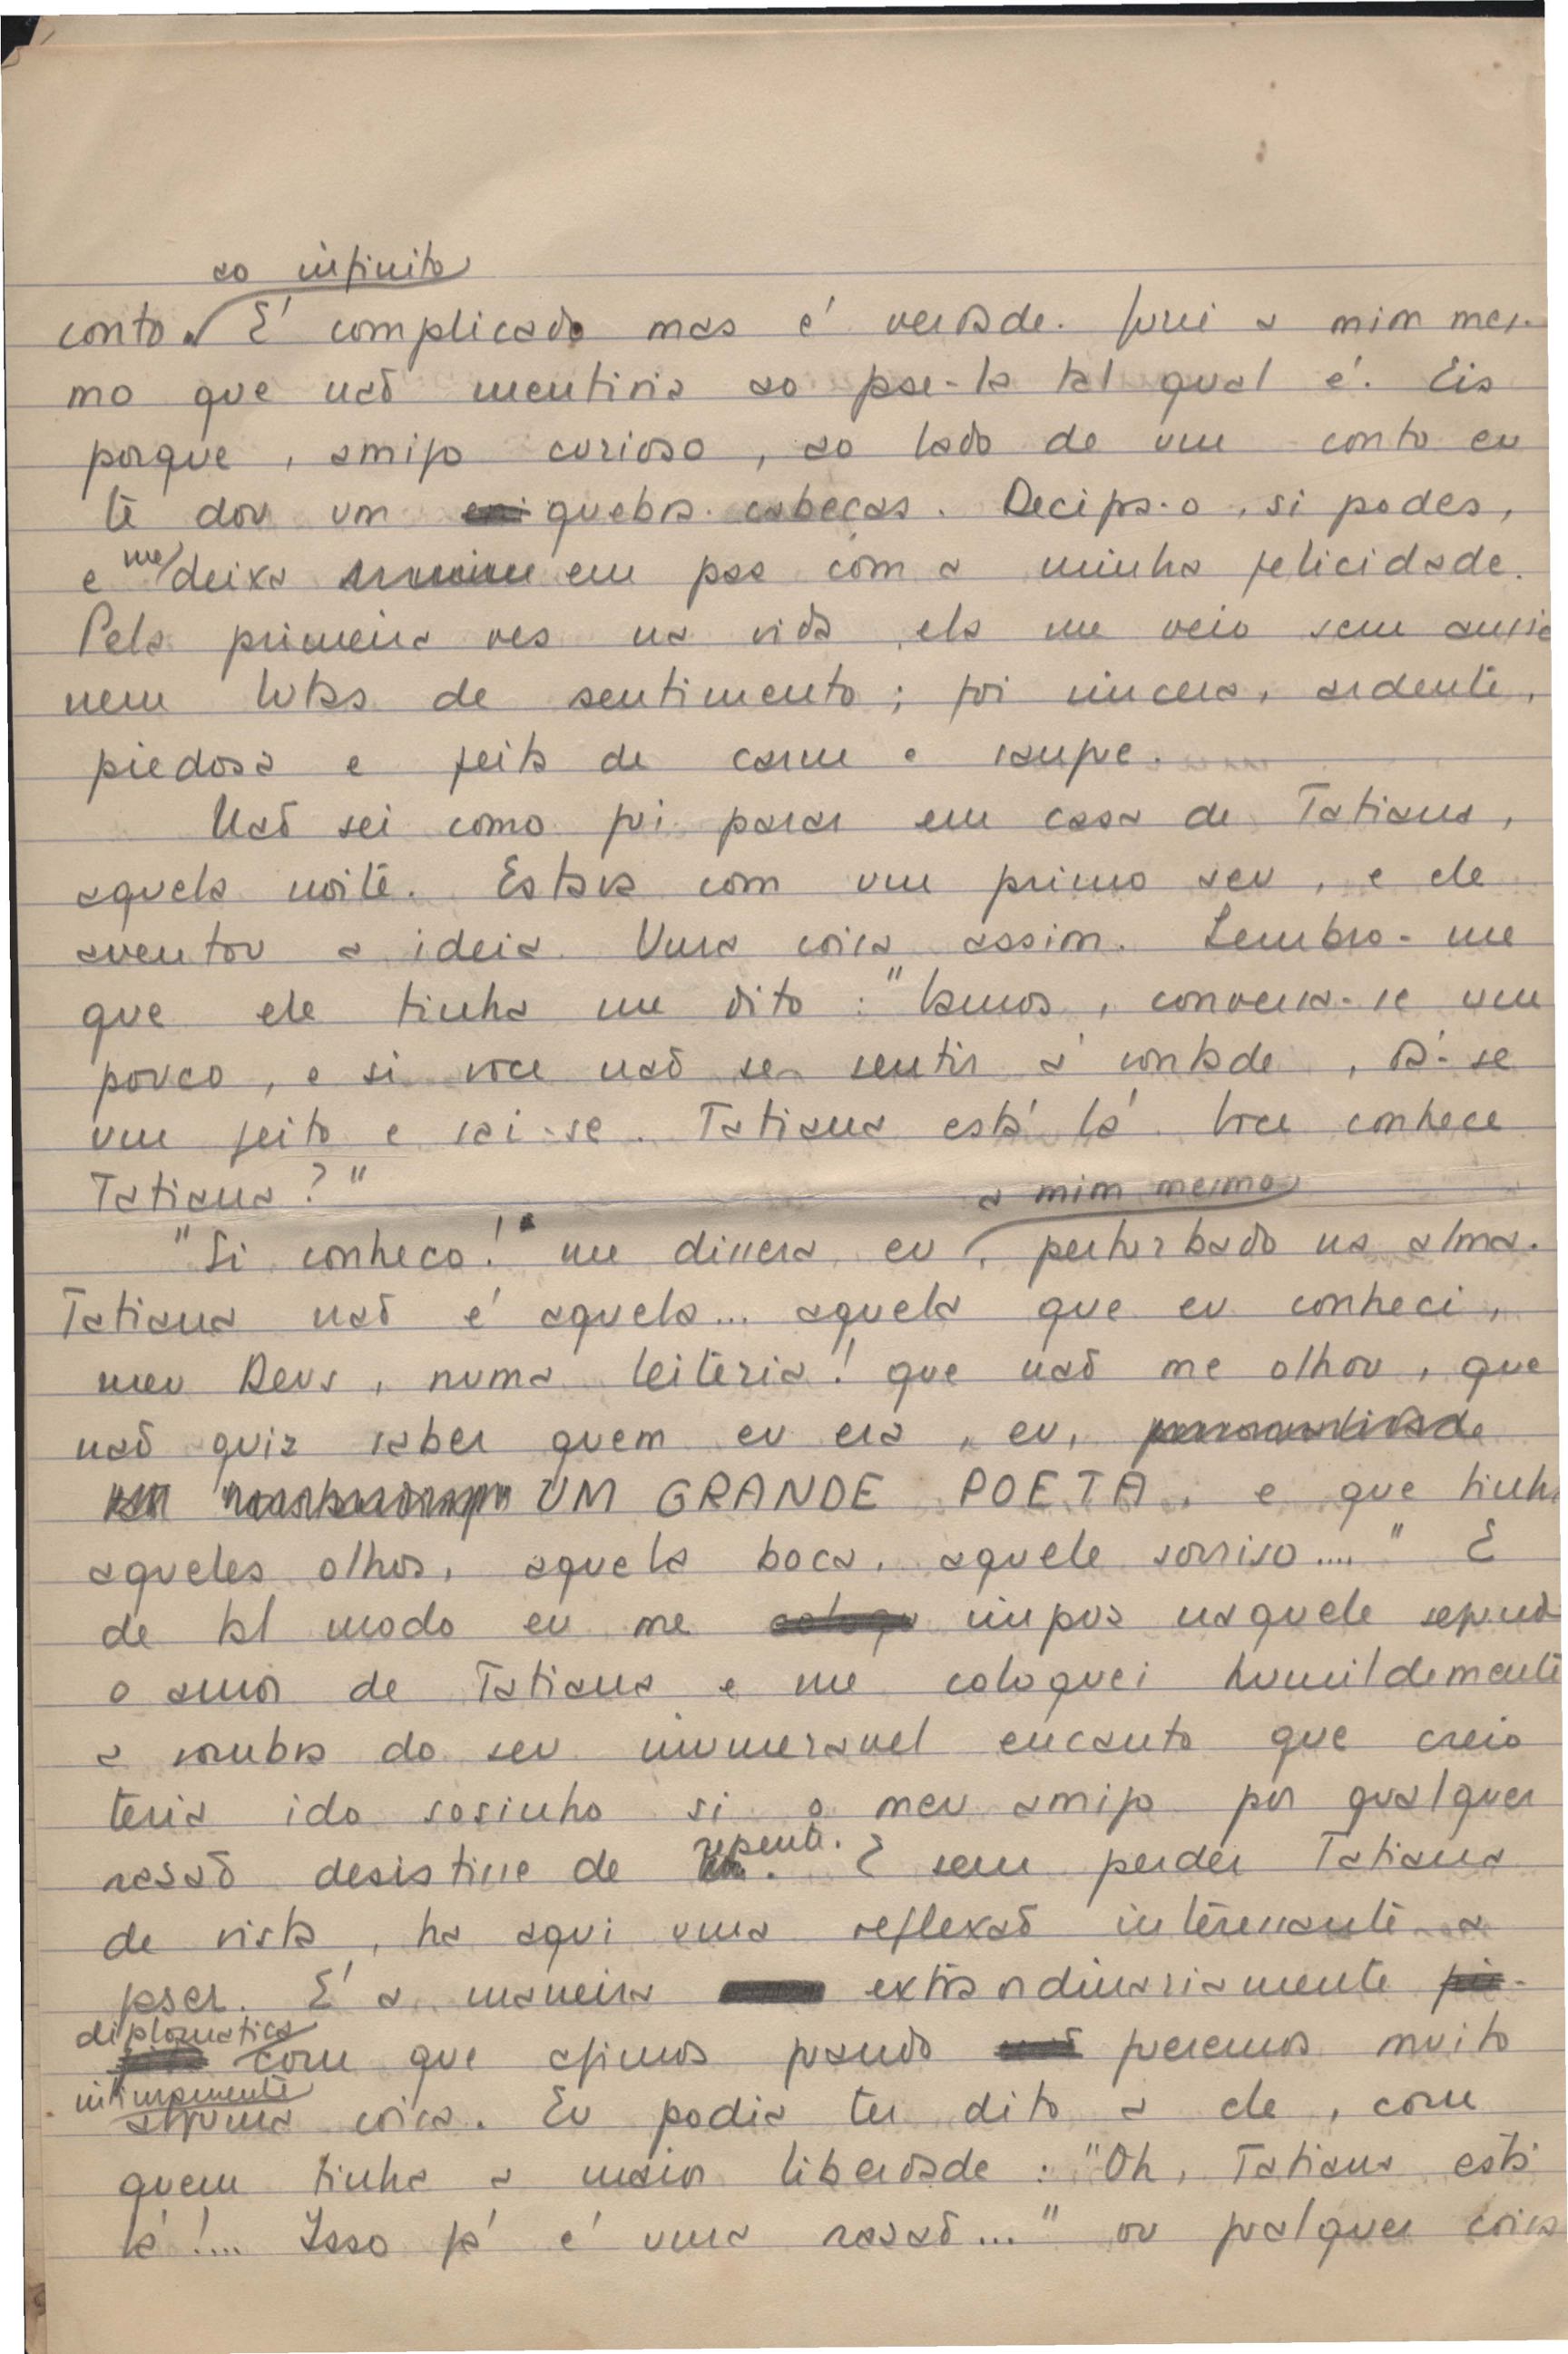 ao infinito
conto. É complicado mas é verdade. Jurei a mim mes-
mo que naõ mentiria ao pse-la tal qual é. Eis
porque, amigo curioso, ao lado de um conto eu
te dou um quebra-cabeças. Decifra-o, si podes,
e me deixa em pas com a minha felicidade.
Pela primeira ves na vida ela me veio sem ansia
nem lutas de sentimento; foi sincera, ardente,
piedosa e feita de carne e sangue.
Naõ sei como fui parar em casa de Tatiana,
aquela noite. Estava com um primo seu, e ele
aventou a ideia. Uma coisa assim. Lembro-me
que ele tinha me dito: "Vamos, conversa-se um
pouco, e si voce naõ se sentir á vontade, dá-se
um jeito e sai-se. Tatiana está lá. Voce conhece
Tatiana?"
a mim mesmo
"Si conheço!" me dissera eu, perturbado na alma.
Tatiana naõ é aquela... aquela que eu conheci,
meu Deus, numa leiteria! que naõ me olhou, que
naõ quiz saber quem eu era, eu,
UM GRANDE POETA, e que tinha
aqueles olhos, aquela boca, aquele sorriso...." E
de tal modo eu me impus naquele segundo
o amor de Tatiana e me coloquei humildemente
a sombra do seu inumeravel encanto que creio
teria ido sosinho si o meu amigo por qualquer
rasaõ desistisse de repente. E sem perder Tatiana
de vista, ha aqui uma reflexaõ interessante a
faser. É a maneira extraordinariamente
diplomatica
com que agimos quando queremos muito
intimamente
alguma coisa. Eu podia ter dito a ele, com
quem tinha a maior liberdade: "Oh, Tatiana está
lá!... Isso já é uma rasaõ..." ou qualquer coisa